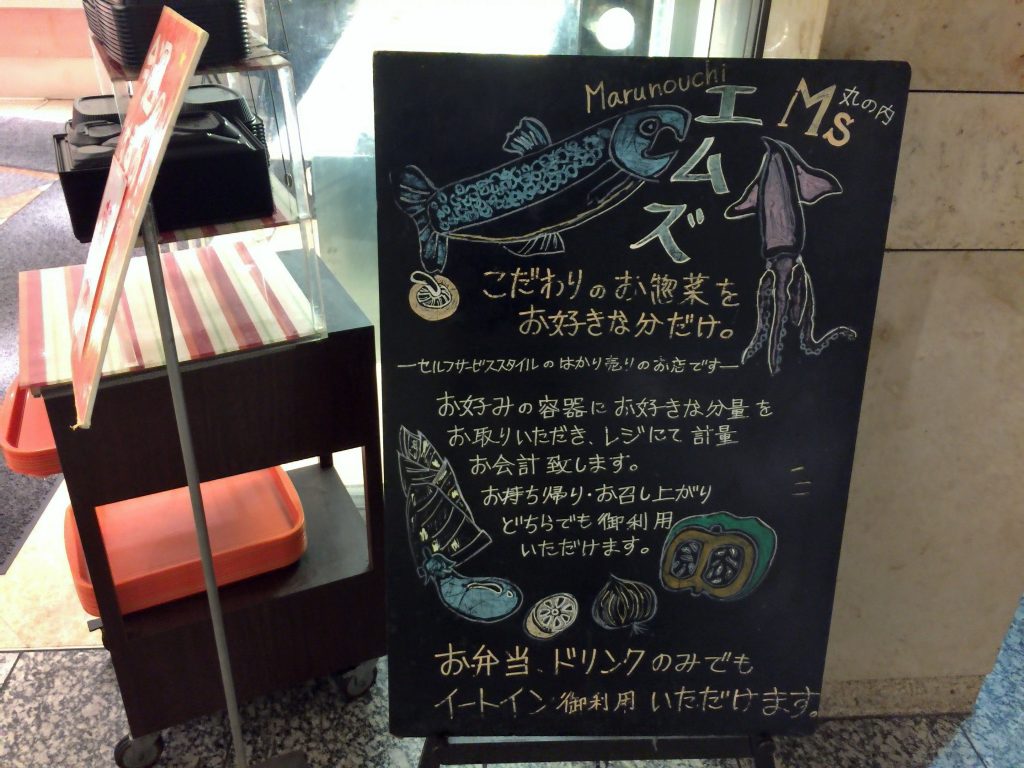 Marunouchi
エムズ
Ms
丸の内
こだわりのお惣菜を
お好きな分だけ。
―セルフサービススタイルのはかり売りのお店です―
お好みの容器にお好きな分量を
お取りいただき、レジにて計量
お会計致します。
お持ち帰り・お召し上がり
どちらでも御利用
いただけます。
お弁当、ドリンクのみでも
イートイン御利用いただけます。